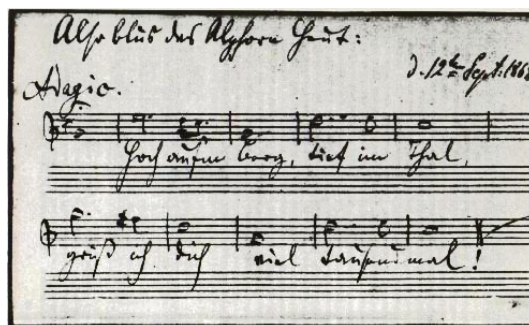 Also blus das Alphorn heut:
d. 12ten Sept: 1868
Adagio.
Hoch auf'm Berg, tief im Thal,
grüß ich dich viel tausendmal!